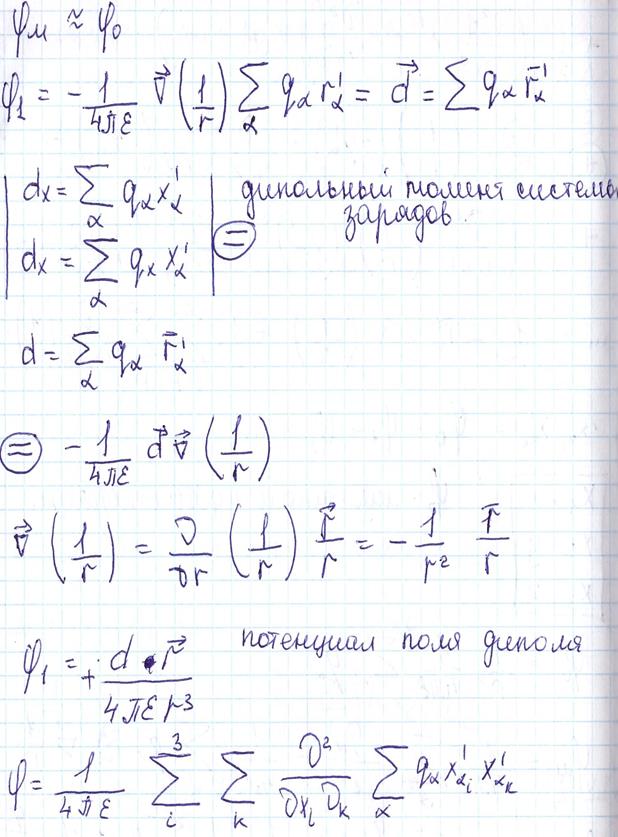 φ_м ≈ φ_0
φ_1 = - 1/4πε ∇⃗ (1/r) ∑_α q_α r'_α = d⃗ = ∑ q_α r̄'_α
d_x = ∑_α q_α x'_α дипольный момент системы
зарядов.
d_x = ∑_α q_x x'_α ⊜
d = ∑_α q_α r̄'_α
⊜ - 1/4πε d⃗ ∇⃗ (1/r)
∇⃗ (1/r) = ∂/∂r (1/r) r⃗/r = - 1/r² r̄/r
φ_1 = + d · r⃗ / 4πε r³ потенциал поля диполя
φ = 1/4πε ∑_i^3 ∑_k ∂²/∂x_i ∂_k ∑_α q_α x'_{α_i} x'_{α_k}